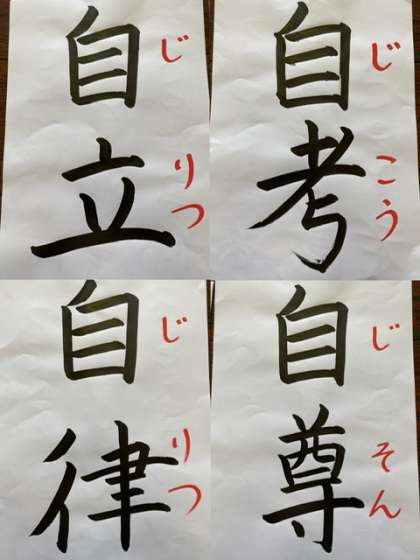 自立
じりつ
自考
じこう
自律
じりつ
自尊
じそん